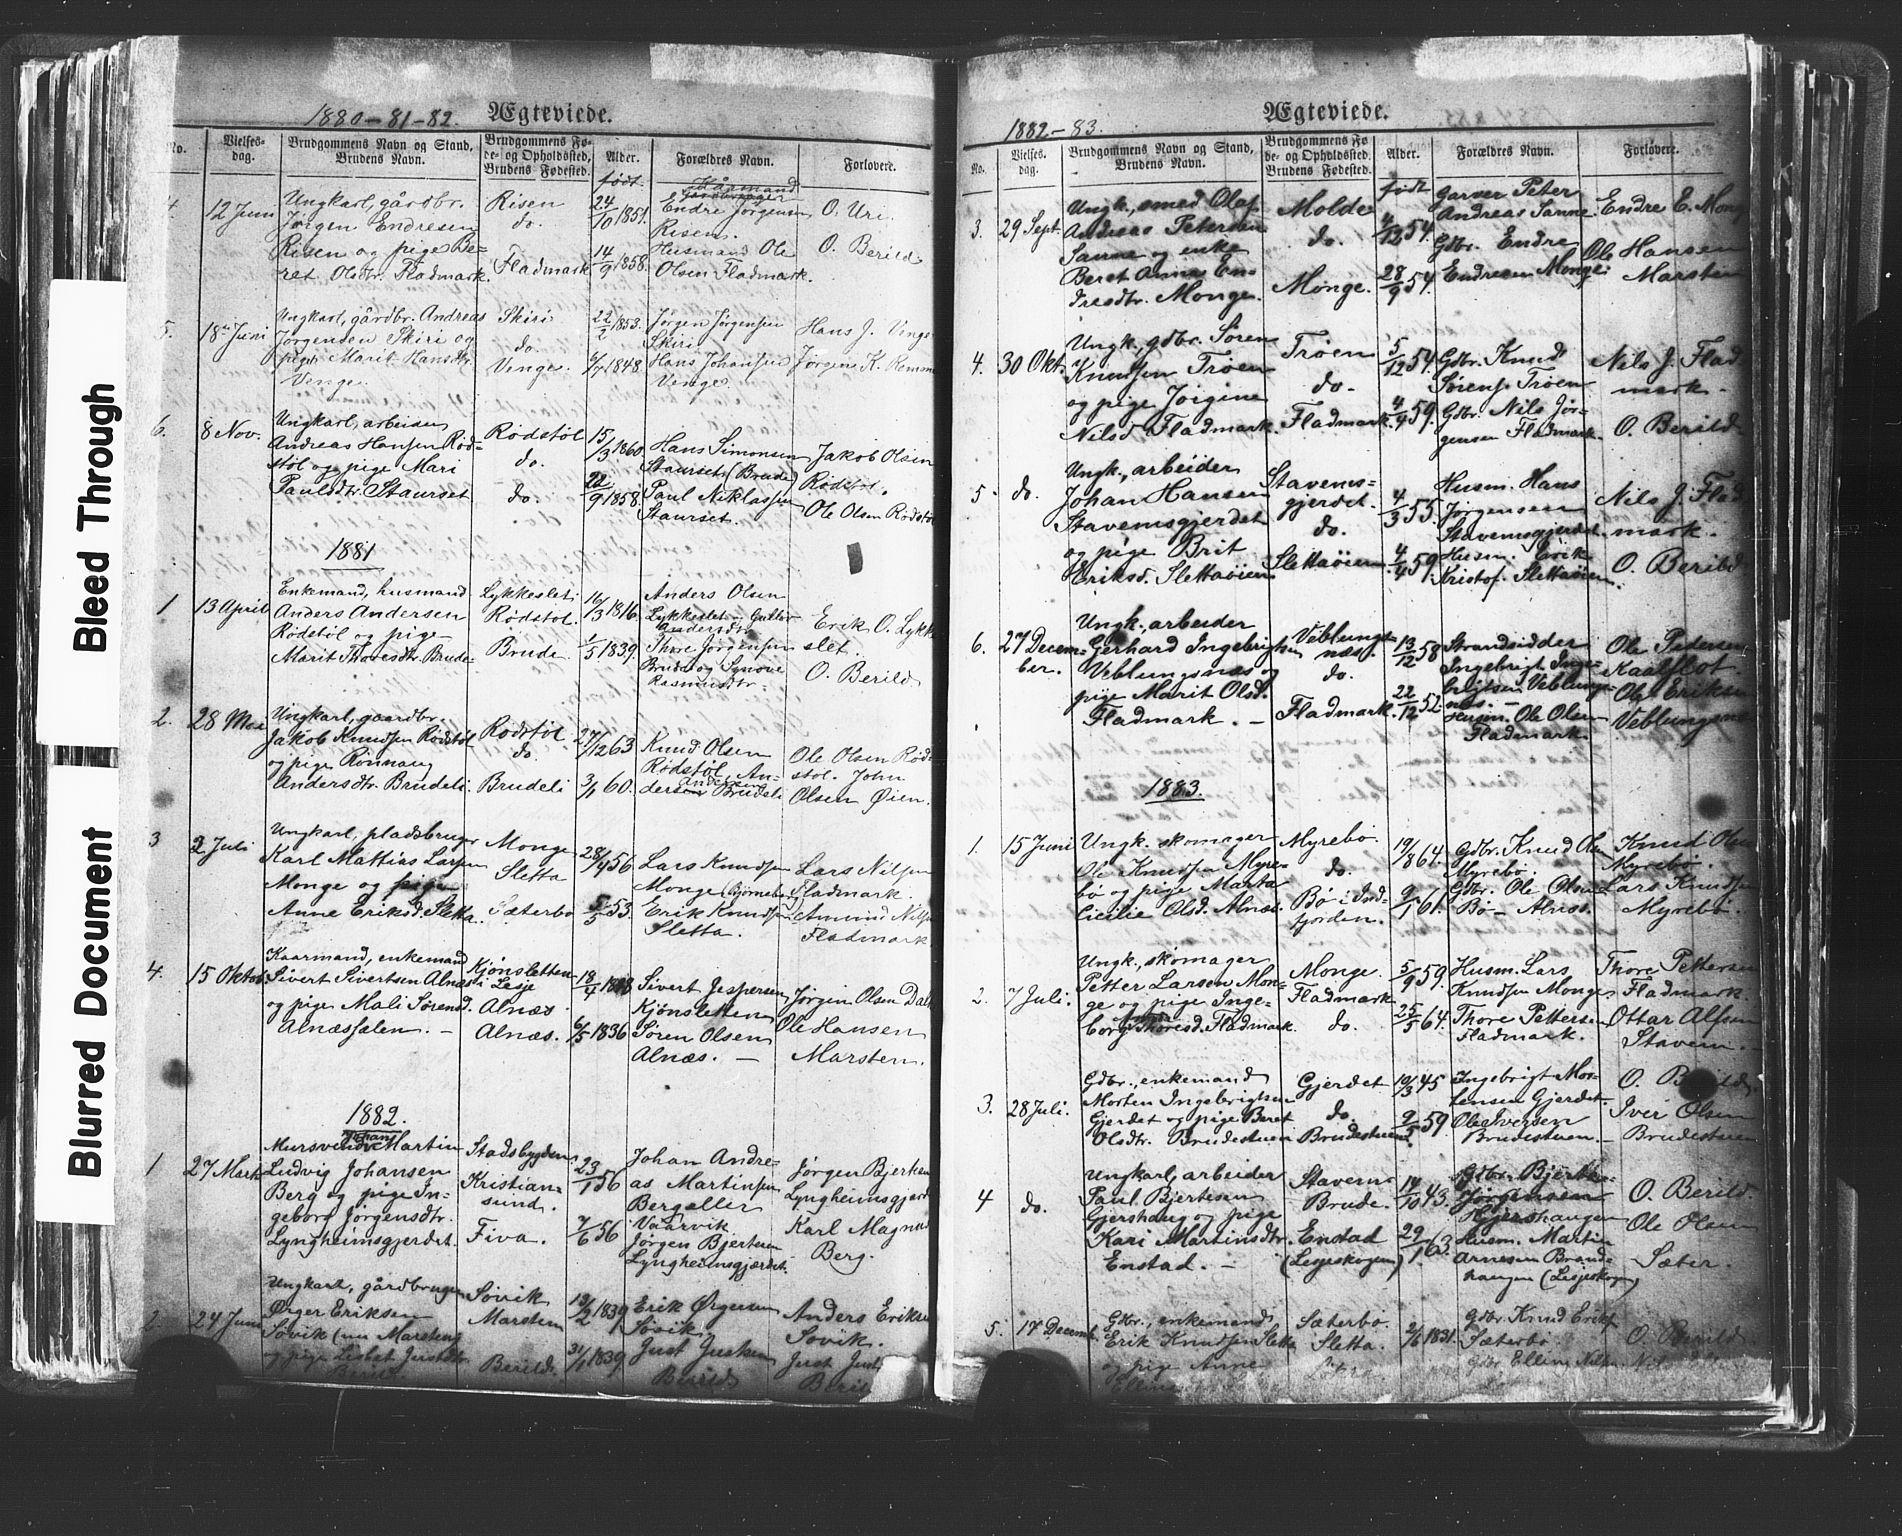 Bleed Through
Blurred Document
1880-81-82. Ægteviede.
No.
Vielses-
dag.
Brudgommens Navn og Stand,
Brudens Navn.
Brudgommens Fø-
de- og Opholdssted,
Brudens Fødested.
Alder.
Forældres Navn.
Forlovere.
født.
4
12 Juni
Ungkarl, gårdbr.
Jørgen Endresen
Risen og pige Be-
ret Olsdtr. Fladmark.
Risen
do.
Fladmark
24/10 1851.
14/9 1858.
Kårmand
Endre Jørgensen
Risen.
Husmand Ole
Olsen Fladmark.
O. Uri.
O. Berild
5.
18de Juni
Ungkarl, gårdbr. Andreas
Jørgensen Skiri og
pige Marit Hansdtr.
Venge.
Skiri
do.
Venge.
22/2 1853.
1848.
Jørgen Jørgensen
Skiri
Hans Johansen
Venge.
Hans J. Venge
Jørgen K. Remm
6.
8 Nov.
Ungkarl, arbeider
Andreas Hansen Rød-
støl og pige Mari
Paulsdtr. Staurset
Rødstøl
do.
do.
15/3 1860
22/9 1858.
Hans Simonsen
Staurset (Brude)
Paul Niklassen
Staurset.
Jakob Olsen
Rødstøl.
Ole Olsen Rødstøl
1881
1
13 April
Enkemand, husmand
Anders Andersen
Rødstøl og pige
Marit Thoresdtr. Brude.
Lykkeslet
Rødstøl.
Brude.
16/3 1816.
1/5 1839.
Anders Olsen
Lykkeslet og Gullov
Andersdtr.
Thore Jørgensen
Brude og Synove
Rasmusdtr.
Erik O. Lykk
slet.
O. Berild
2.
28 Mai
Ungkarl, gaardbr.
Jakob Knudsen Rødstøl
og pige Rønnaug
Andersdtr. Brudeli.
Rødstøl
do.
Brudeli
27/12 63
3/1 60.
Knud Olsen
Rødstøl. An-
ders Andersen
Brudeli
Ole Olsen Rød-
støl. John
Olsen Øien.
3
2 Juli
Ungkarl, pladsbruger
Karl Mattias Larsen
Monge og pige
Anne Eriksd. Sletta.
Monge
Sletta
Sæterbø
28/4 56
5/5 53.
Lars Knudsen
Monge (Bjørnebeng)
Erik Knudsen
Sletta.
Lars Nilsen
Fladmark.
Amund Nils
Fladmark.
4.
15 Oktob.
Kaarmand, enkemand
Sivert Sivertsen Alnæs
og pige Mali Sørensd.
Alnæssælen. —
Kjønsletten
i Lesje
Alnæs.
Alnæs.
18/4
6/5 1836
Sivert Jespersen
Kjønsletten
Søren Olsen
Alnæs. —
Jørgen Olsen Dal
Ole Hansen
Marsten.
1882.
1
27 Marts
Mursvend Johans Martin
Ludvig Johansen
Berg og pige In-
geborg Jørgensdtr.
Lyngheimsgjerdet.
Stadsbygden
Kristian-
sund.
Fiva.
23/1 56
7/6 56
Johan Andre-
as Martinsen
Bergaller
Vaarvik
Jørgen Bjertsen
Lyngheimsgjærdet.
Jørgen Bjerken
Lyngheimsgjerd
Karl Magnus
Berg.
2.
24 Juni
Ungkarl, gårdbruger
Ørger Eriksen
Søvik (nu Marsten)
og pige Lisbet Justdtr.
Berild
Søvik
Marsten
Berild.
13/2 1839
31/1 1839
Erik Ørgersen
Søvik.
Just Justsen
Berild
Anders Eriks
Søvik.
Just Just
Berild
1882-83. Ægteviede.
No.
Vielses-
dag.
Brudgommens Navn og Stand,
Brudens Navn.
Brudgommens Fø-
de- og Opholdssted,
Brudens Fødested.
Alder.
Forældres Navn.
Forlovere.
født
3.
29 Sept.
Ungk., smed Olaf
Andreas Petersen
Sanne og enke
Beret Anna En-
dresdtr. Monge.
Molde
do.
Monge.
4/12 54.
28/9 54.
Garver Peter
Andreas Sanne.
Gdbr. Endre
Endresen Monge.
Endre E. Mong
Ole Hansen
Marsten
4.
30 Okt.
Ungk., gdbr. Søren
Knudsen Trøen
og pige Jørgine
Nilsd. Fladmark.
Trøen
do.
Fladmark.
5/12 54.
4/4 59.
Gdbr. Knud
Sørens. Trøen
Gdbr. Nils Jør-
gensen Fladmark.
Nils J. Flad
mark.
O. Berild.
5
do.
Ungk., arbeider
Johan Hansen
Stavemsgjerdet
og pige Brit
Eriksd. Slettaøien
Stavems-
gjerdet.
do.
Slettaøien.
4/3 55.
4/4 59.
Husm. Hans
Jørgensen
Stavemsgjerdet.
Husm. Erik
Kristof. Slettaøien.
Nils J. Flad
mark.
O. Berild
6.
27 Decem-
ber.
Ungk., arbeider
Gerhard Ingebrigtsen
Veblungsnæs og
pige Marit Olsd.
Fladmark. —
Veblungs-
næs.
do.
Fladmark.
13/12 58
22/12 52.
Strandsidder
Ingebrigt Inge-
brigtsen Veblungs-
næs. —
Husm. Ole Olsen
Fladmark.
Ole Petersen
Kaalflot.
Ole Eriksen
Veblungsnæs
1883.
1.
15 Juni
Ungk. skomager
Ole Knudsen Myre-
bø og pige Marta
Cicilie Olsd. Alnæs.
Myrebø
do.
Bø i Ind-
fjorden.
19/8 64.
9/1 61.
Gdbr. Knud Olsen
Myrebø.
Gdbr. Ole Olsen
Bø — Alnæs.
Knud Olsen
Myrebø.
Lars Knudsen
Myrebø.
2.
7 Juli.
Ungk., skomager
Petter Larsen Mon-
ge og pige Inge-
borg Anna Thoresd. Fladmark.
Monge.
Fladmark
do.
5/9 59.
25/5 64.
Husm. Lars
Knudsen Monge
Thore Pettersen
Fladmark.
Thore Pettersen
Fladmark.
Ottar Alfsen
Stavem. —
3.
28 Juli.
Gdbr., enkemand
Morten Ingebrigtsen
Gjerdet og pige Beret
Olsdtr. Brudestuen
Gjerdet
do.
Brudestuen.
10/3 45
9/5 59
Ingebrigt Mor-
tensen Gjerdet.
Ole Iversen
Brudestuen. —
O. Berild
Iver Olsen
Brudestuen
4
do.
Ungkarl, arbeider
Paul Bjertesen
Gjershaug og pige
Kari Martinsdtr.
Enstad. —
Stavem
Brude.
Enstad
(Lesjeskogen)
14/10 43.
29/1 63.
Gdbr. Bjerte
Jørgensen
Gjershaugen
Husm. Martin
Arnesen Brande-
haugen (Lesjeskogen)
O. Berild.
Ole Olsen
Sæter.
5.
17 Decemb.
Gdbr., enkemand
Erik Knudsen Sletta
og pige Anne
Sæterbø.
Sletta.
Løkra.
2/6 1831.
Gdbr. Knud Eriks.
Sæterbø.
Gdbr. Elling Nils.
Løkra
O. Berild